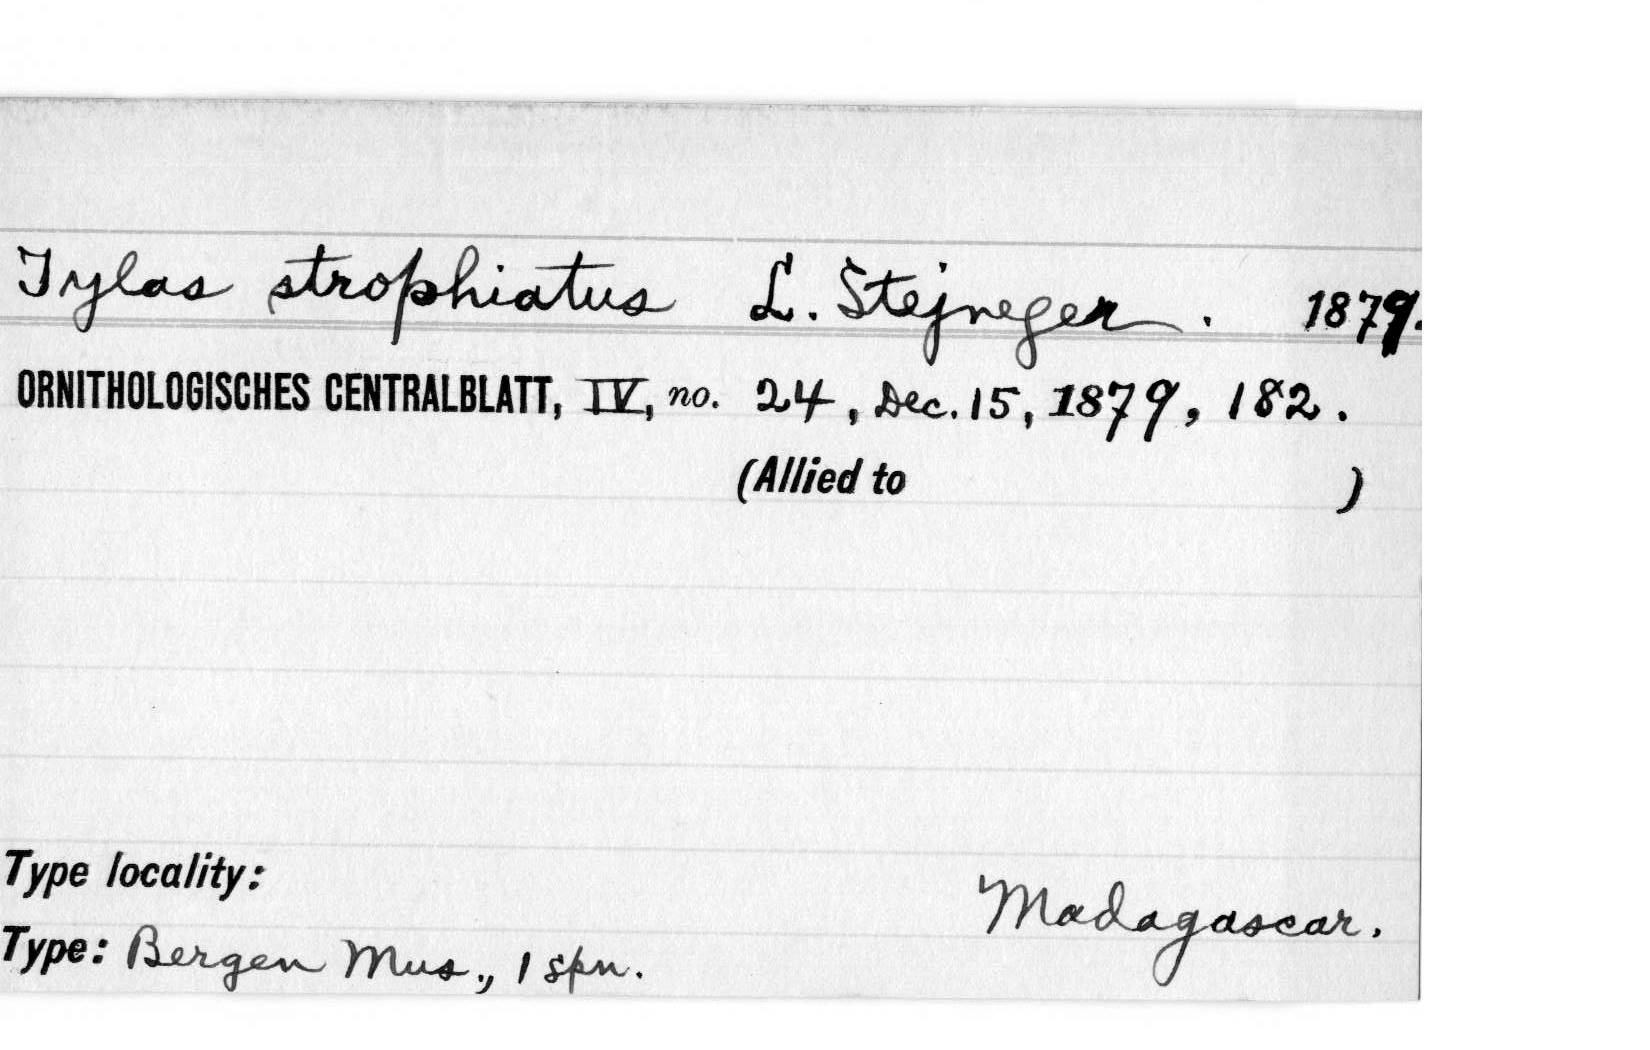 Tylas strophiatus L. Stejneger. 1879.
ORNITHOLOGISCHES CENTRALBLATT, IV, no. 24, Dec. 15, 1879, 182.
(Allied to )
Type locality:
Madagascar.
Type: Bergen Mus., 1 spn.